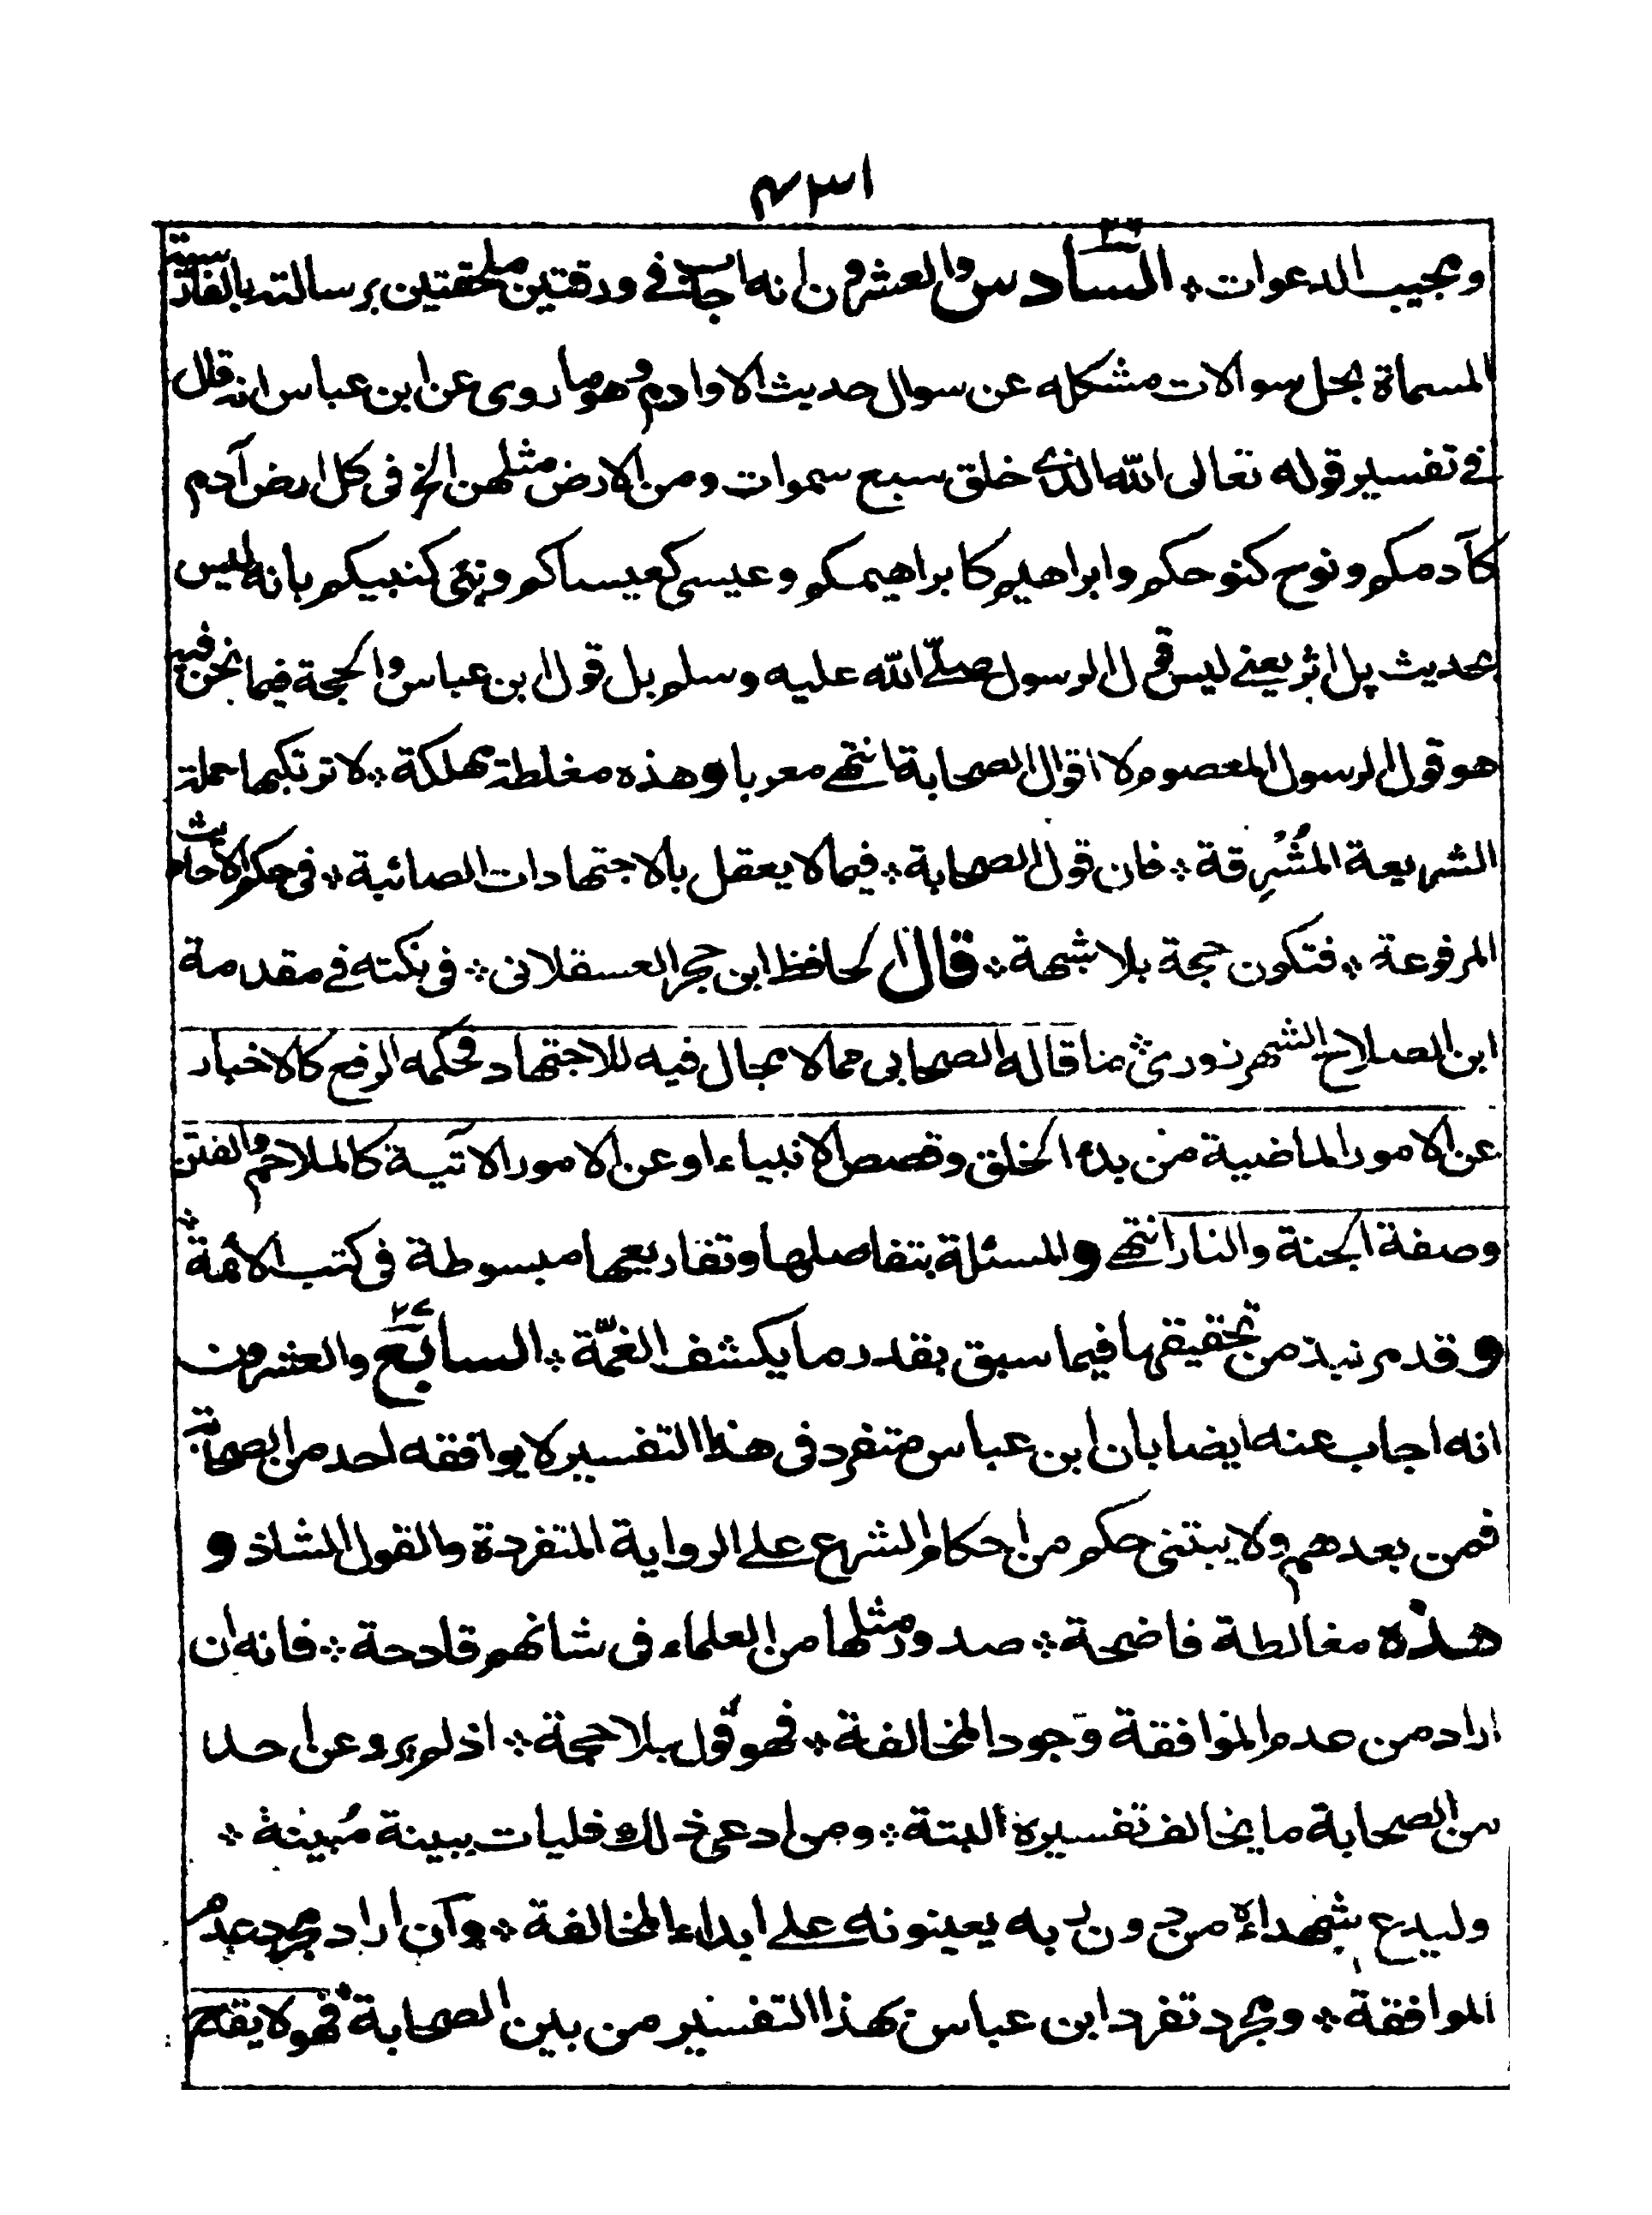 ٤٣١
ومجيب الدعوات ٭ السادس والعشرون انه اجاب في ورقتين ملحقتين برسالته بالفارسية
المسماة بحل سوالات مشكله عن سوال حديث الاوادم وهو ما روى عن ابن عباس انه قال
في تفسير قوله تعالى الله الذي خلق سبع سموات ومن الارض مثلهن الخ فى كل ارض آدم
كآدمكم ونوح كنوحكم وابراهيم كابراهيمكم وعيسى كعيساكم ونبى كنبيكم بانه ليس
بحديث بل اثر يعنے ليس قول الرسول صلى الله عليه وسلم بل قول ابن عباس والحجة فيما نحن فيه
هو قول الرسول المعصوم لا اقوال الصحابة انتهى معربا وهذه مغلطة مهلكة ٭ لا ترتكبها حملة
الشريعة المُشْرِقة ٭ فان قول الصحابة ٭ فيما لا يعقل بالاجتهادات الصائبة ٭ فى حكم الاحاديث
المرفوعة ٭ فتكون حجة بلا شبهة ٭ قال الحافظ ابن حجر العسقلانى ٭ فى نكته في مقدمة
ابن الصلاح الشهرزورى ٭ ما قاله الصحابى مما لا مجال فيه للاجتهاد فحكمه الرفع كالاخبار
عن الامور الماضية من بدء الخلق وقصص الانبياء او عن الامور الآتية كالملاحم والفتن
وصفة الجنة والنار انتهى والمسئلة بتفاصلها وتفاريعها مبسوطة فى كتب الأئمة ٭
وقد مر نبذ من تحقيقها فيما سبق بقدر ما يكشف الغمّة ٭ السابع ٢٧ والعشرون
انه اجاب عنه ايضا بان ابن عباس متفرد فى هذا التفسير لا يوافقه احد من الصحابة
فمن بعدهم ولا يبتنى حكم من احكام الشرع على الرواية المتفردة والقول الشاذ و
هذه مغالطة فاضحة ٭ صدور مثلها من العلماء فى شانهم قادحة ٭ فانه ان
اراد من عدم الموافقة وجود المخالفة ٭ فهو قول بلا حجة ٭ اذ لم يرو عن احد
من الصحابة ما يخالف تفسيره البتة ٭ ومن ادعى ذلك فليات ببينة مُبينة ٭
وليدع شهداءه من دون ربه يعينونه على ابداء المخالفة ٭ وان اراد مجرد عدم
الموافقة ٭ ومجرد تفرد ابن عباس بهذا التفسير من بين الصحابة ٭ فهو لا يقدح